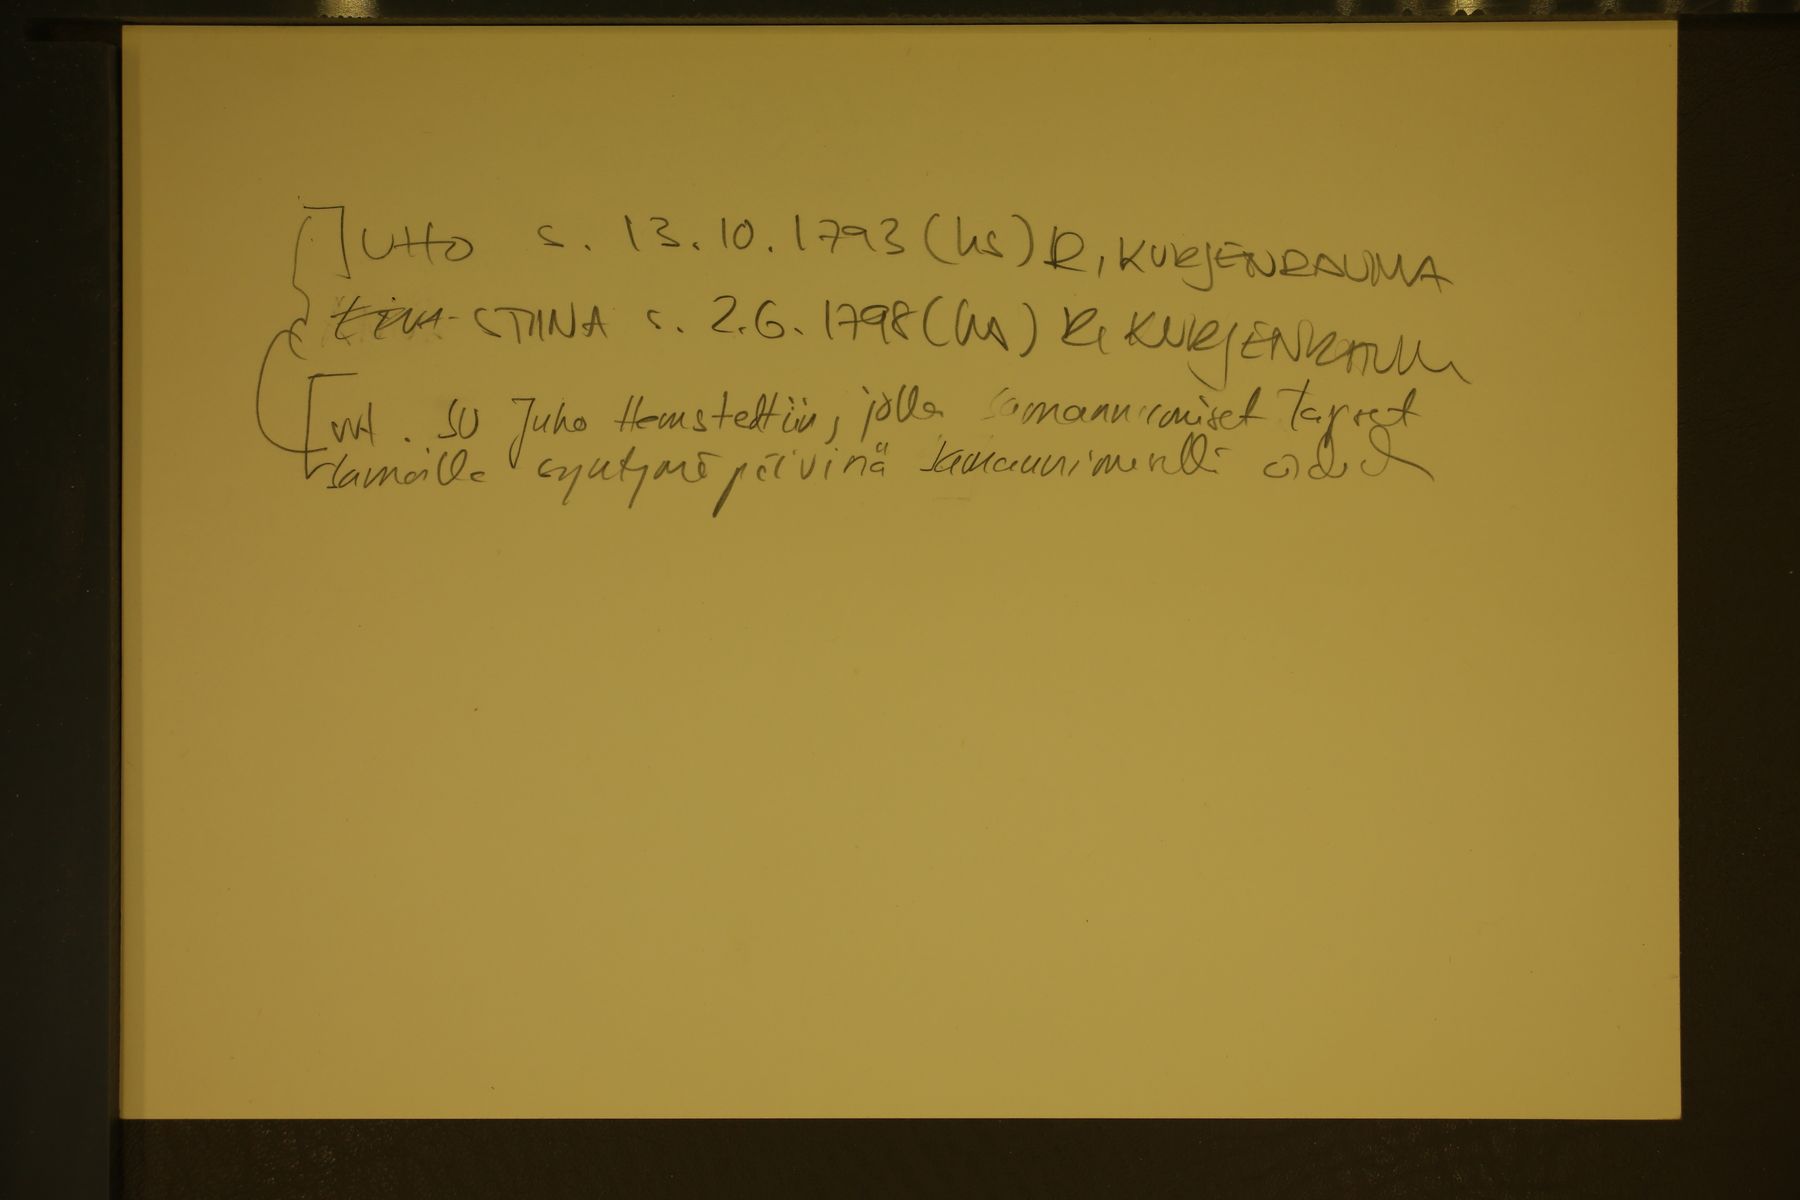 JUHO s. 13.10.1793 (hs) R, KURJENRAUMA
STIINA s. 2.6. 1798 (hs) R, KURJENRAUMA
[vrt. SU Juho Hemstedtiin, jolla samannimiset lapset
samoilla syntymäpäivinä samannimisellä